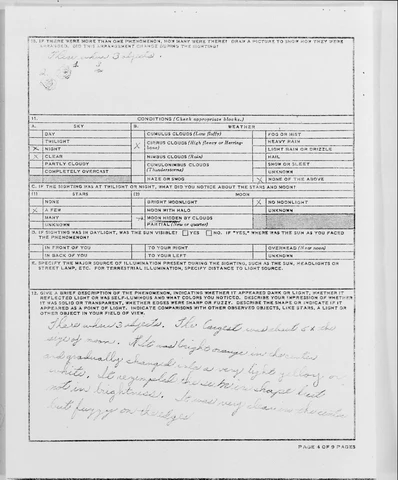 10. IF THERE WERE MORE THAN ONE PHENOMENON, HOW MANY WERE THERE? DRAW A PICTURE TO SHOW HOW THEY WERE
ARRANGED. DID THIS ARRANGEMENT CHANGE DURING THE SIGHTING?
There when 3 objects.
11. CONDITIONS (Check appropriate blocks.)
A. SKY B. WEATHER
DAY CUMULUS CLOUDS (Low fluffy) FOG OR MIST
TWILIGHT CIRRUS CLOUDS (High fleecy or Herring-bone) HEAVY RAIN
X NIGHT LIGHT RAIN OR DRIZZLE
X CLEAR NIMBUS CLOUDS (Rain) HAIL
PARTLY CLOUDY CUMULONIMBUS CLOUDS SNOW OR SLEET
COMPLETELY OVERCAST (Thunderstorms) UNKNOWN
HAZE OR SMOG X NONE OF THE ABOVE
C. IF THE SIGHTING WAS AT TWILIGHT OR NIGHT, WHAT DID YOU NOTICE ABOUT THE STARS AND MOON?
(1) STARS (2) MOON
NONE BRIGHT MOONLIGHT X NO MOONLIGHT
X A FEW MOON WITH HALO UNKNOWN
MANY MOON HIDDEN BY CLOUDS
UNKNOWN PARTIAL (New or quarter)
D. IF SIGHTING WAS IN DAYLIGHT, WAS THE SUN VISIBLE? YES NO. IF "YES," WHERE WAS THE SUN AS YOU FACED
THE PHENOMENON?
IN FRONT OF YOU TO YOUR RIGHT OVERHEAD (Near noon)
IN BACK OF YOU TO YOUR LEFT UNKNOWN
E. SPECIFY THE MAJOR SOURCE OF ILLUMINATION PRESENT DURING THE SIGHTING, SUCH AS THE SUN, HEADLIGHTS OR
STREET LAMP, ETC. FOR TERRESTRIAL ILLUMINATION, SPECIFY DISTANCE TO LIGHT SOURCE.
12. GIVE A BRIEF DESCRIPTION OF THE PHENOMENON, INDICATING WHETHER IT APPEARED DARK OR LIGHT, WHETHER IT
REFLECTED LIGHT OR WAS SELF-LUMINOUS AND WHAT COLORS YOU NOTICED. DESCRIBE YOUR IMPRESSION OF WHETHER
IT WAS SOLID OR TRANSPARENT, WHETHER EDGES WERE SHARP OR FUZZY. DESCRIBE THE SHAPE OR INDICATE IF IT
APPEARED AS A POINT OF LIGHT. INDICATE COMPARISONS WITH OTHER OBSERVED OBJECTS, LIKE STARS, A LIGHT OR
OTHER OBJECT IN YOUR FIELD OF VIEW.
There when 3 objects. The largest was about the
size of moon. It was bright orange in the center
and gradually changed into a very light yellow or
white. It resembled the in shape but
not in brightness. It was very clear in the center
but fuzzy on the edges
PAGE 4 OF 9 PAGES